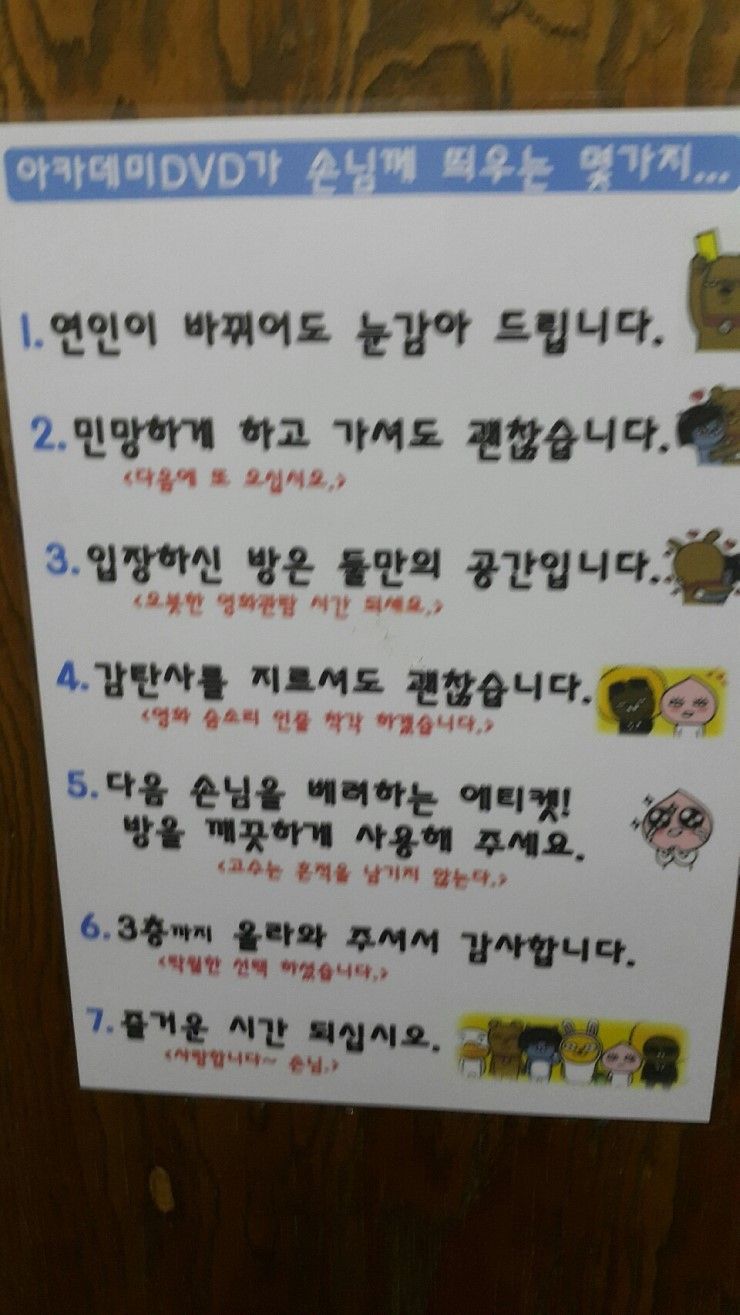 아카데미DVD가 손님께 띄우는 몇가지...
1. 연인이 바뀌어도 눈감아 드립니다.
2. 민망하게 하고 가셔도 괜찮습니다.
<다음에 또 오십시오.>
3. 입장하신 방은 둘만의 공간입니다.
<오붓한 영화관람 시간 되세요.>
4. 감탄사를 지르셔도 괜찮습니다.
<영화 숨소리 인줄 착각 하겠습니다.>
5. 다음 손님을 베려하는 에티켓!
방을 깨끗하게 사용해 주세요.
<고수는 흔적을 남기지 않는다.>
6. 3층까지 올라와 주셔서 감사합니다.
<탁월한 선택 하셨습니다.>
7. 즐거운 시간 되십시오.
<사랑합니다~ 손님.>